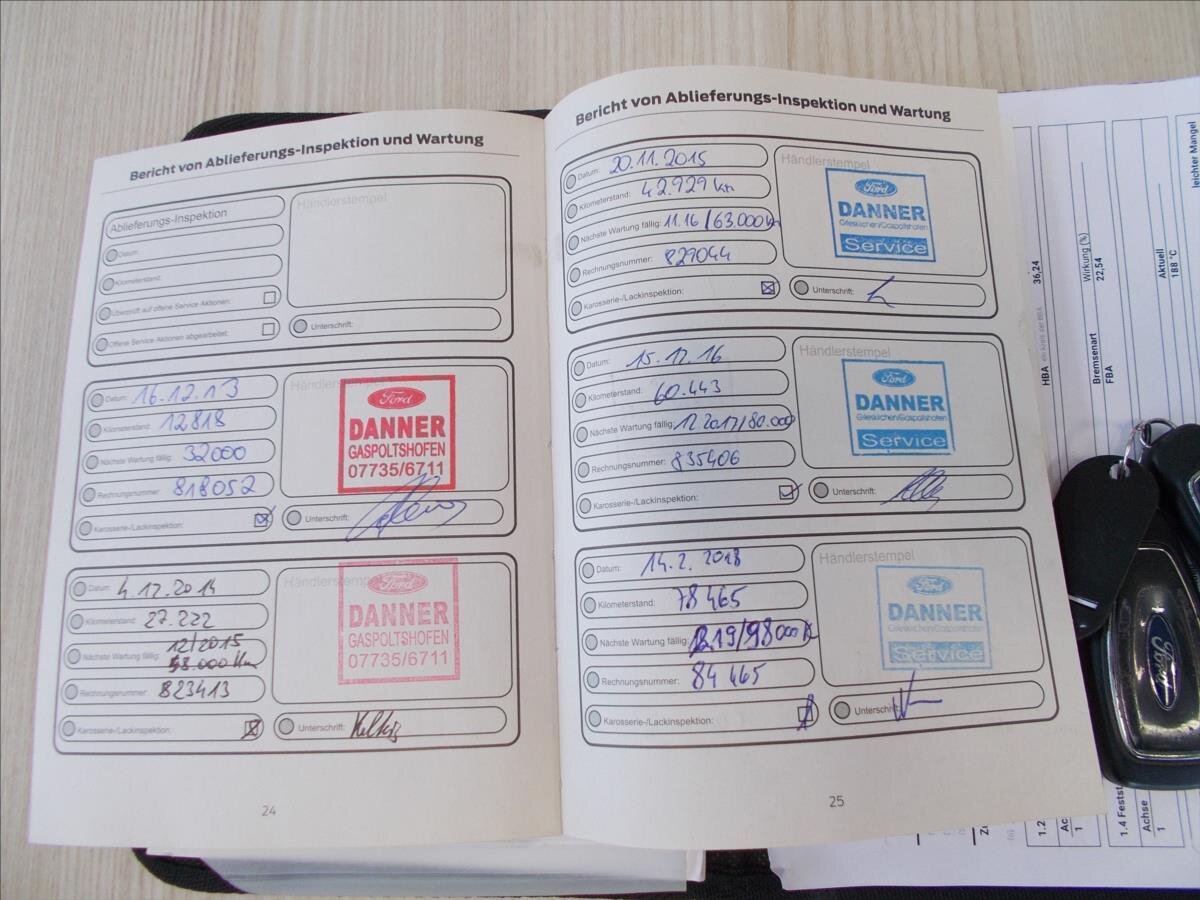 Bericht von Ablieferungs-Inspektion und Wartung
Ablieferungs-Inspektion
Datum:
Kilometerstand:
Überprüft auf offene Service Aktionen:
Offene Service Aktionen abgearbeitet:
Händlerstempel
Unterschrift:
Datum: 16.12.13
Kilometerstand: 12818
Nächste Wartung fällig: 32000
Rechnungsnummer: 818052
Karosserie-/Lackinspektion:
Händlerstempel
Ford
DANNER
GASPOLTSHOFEN
07735/6711
Unterschrift:
Datum: 4.12.2014
Kilometerstand: 27.222
12/2015
Nächste Wartung fällig: 48.000 km
Rechnungsnummer: 823413
Karosserie-/Lackinspektion:
Händlerstempel
Ford
DANNER
GASPOLTSHOFEN
07735/6711
Unterschrift:
24
Bericht von Ablieferungs-Inspektion und Wartung
Datum: 20.11.2015
Kilometerstand: 42.929 km
Nächste Wartung fällig: 11.16/63.000 km
Rechnungsnummer: 829044
Karosserie-/Lackinspektion:
Händlerstempel
Ford
DANNER
Grieskirchen/Gaspoltshofen
Service
Unterschrift:
Datum: 15.12.16
Kilometerstand: 60.443
Nächste Wartung fällig: 12 2017/80.000
Rechnungsnummer: 835406
Karosserie-/Lackinspektion:
Händlerstempel
Ford
DANNER
Grieskirchen/Gaspoltshofen
Service
Unterschrift:
Datum: 14.2.2018
Kilometerstand: 78 465
Nächste Wartung fällig: 19/98 000
Rechnungsnummer: 84 465
Karosserie-/Lackinspektion:
Händlerstempel
Ford
DANNER
Grieskirchen/Gaspoltshofen
Service
Unterschrift:
25
HBA
36,24
Bremsenart
FBA
Wirkung (%)
22,54
Aktuell
188 °C
leichter Mangel
1.2
1
1.4
Achse
1
Ford